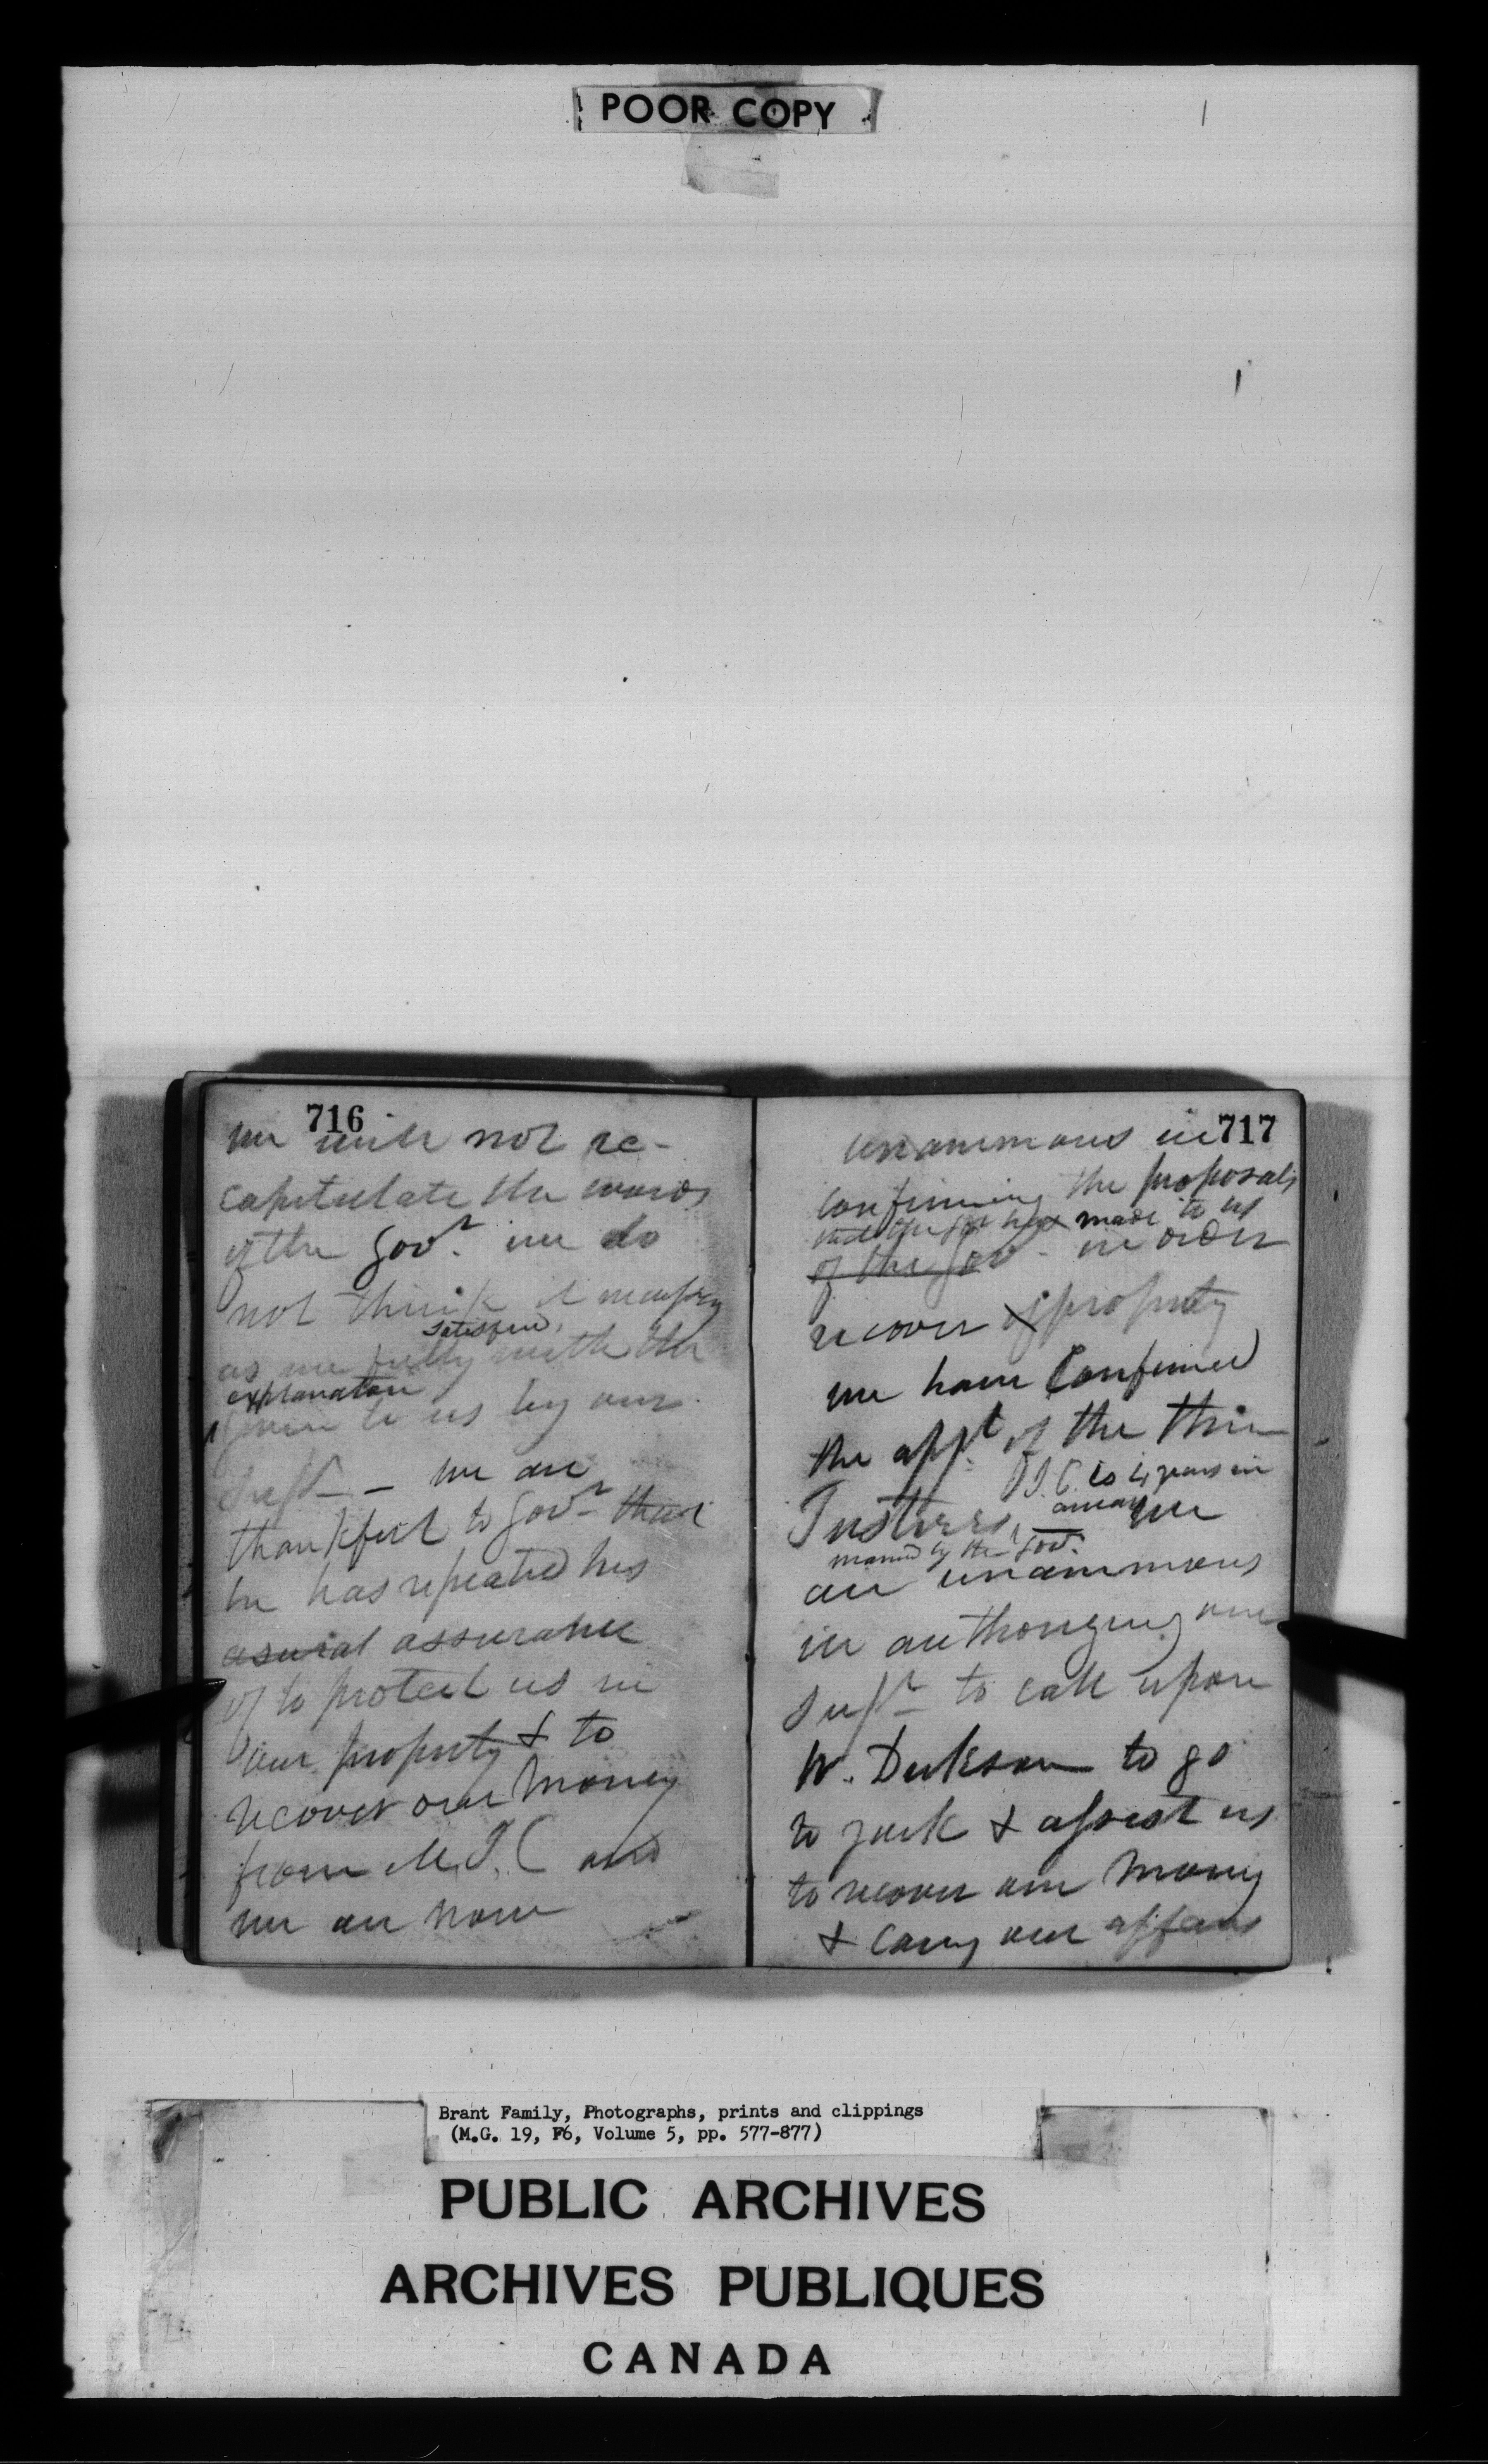 POOR COPY
716
we will not re-
capitulate the words
of the Govr. we do
not think it necessary
satisfied
as we fully with the
explanation
given to us by our
Supt - we are
thankful to Govr that
he has repeated his
assurance
of to protect us in
our property & to
recover our money
from M. J. C and
we are now
717
unanimous in
confirming the proposals
made to us
of the Govr in order
recover property
we have Confirmed
the appt. of the three
J. C. is 4 years in
Trustees, we
named by the Govr.
are unanimous
in authorizing our
Supt to call upon
W. Dickson to go
to york & assist us
to recover our money
& carry our affairs
Brant Family, Photographs, prints and clippings
(M.G. 19, F6, Volume 5, pp. 577-877)
PUBLIC ARCHIVES
ARCHIVES PUBLIQUES
CANADA